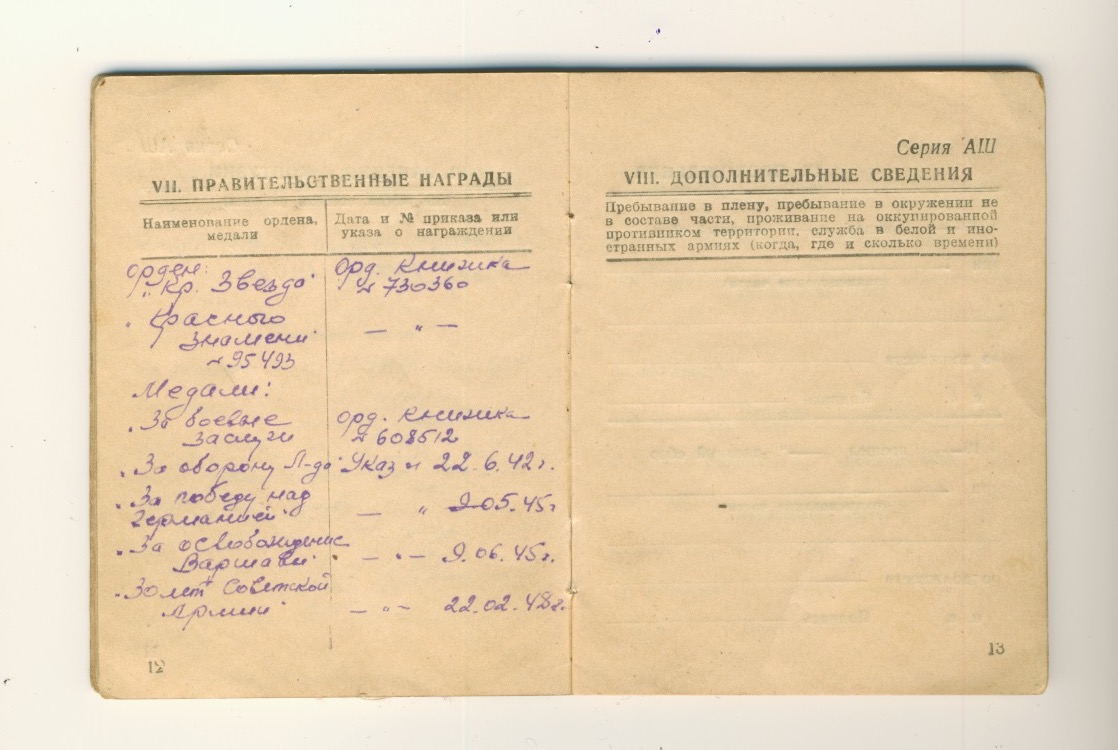 VII. ПРАВИТЕЛЬСТВЕННЫЕ НАГРАДЫ
Наименование ордена, медали
Дата и № приказа или указа о награждении
орден:
„Кр. Звезда“
Орд. Книжка
№ 730360
„Красного
Знамени“
— „ —
№ 95493
Медали:
„За боевые
заслуги
орд. Книжка
№ 608512
„За оборону Л-да“ Указ от 22.6.42г.
„За победу над
Германией“
— „ 9.05.45г
„За освобождение
Варшавы“
— „ — 9.06.45г.
„30 лет Советской
Армии“
— „ — 22.02.48г.
12
Серия АШ
VIII. ДОПОЛНИТЕЛЬНЫЕ СВЕДЕНИЯ
Пребывание в плену, пребывание в окружении не
в составе части, проживание на оккупированной
противником территории, служба в белой и ино-
странных армиях (когда, где и сколько времени)
13